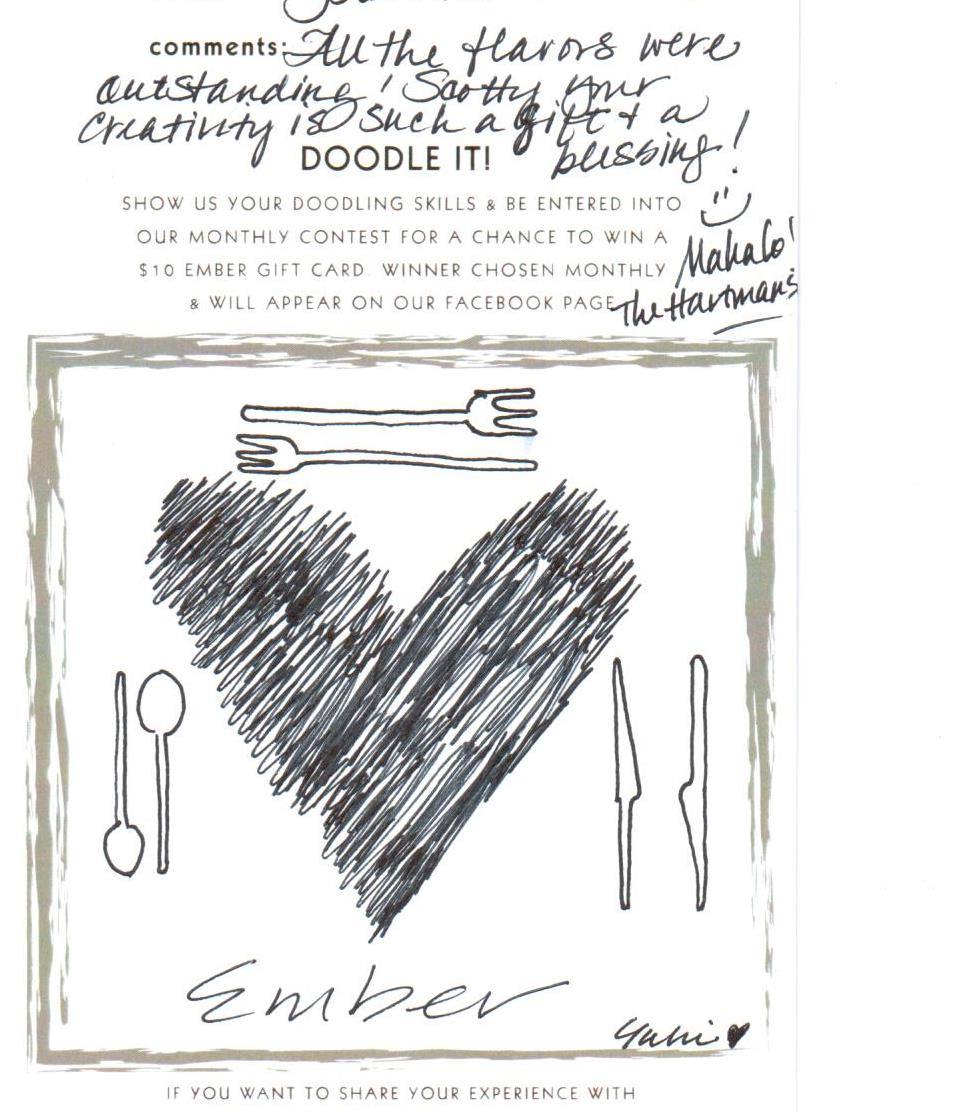 comments: All the flavors were
outstanding! Scotty your
creativity is such a gift & a
blessing!
DOODLE IT!
SHOW US YOUR DOODLING SKILLS & BE ENTERED INTO
OUR MONTHLY CONTEST FOR A CHANCE TO WIN A
$10 EMBER GIFT CARD. WINNER CHOSEN MONTHLY
& WILL APPEAR ON OUR FACEBOOK PAGE
Mahalo!
The Hartman's
Ember
IF YOU WANT TO SHARE YOUR EXPERIENCE WITH